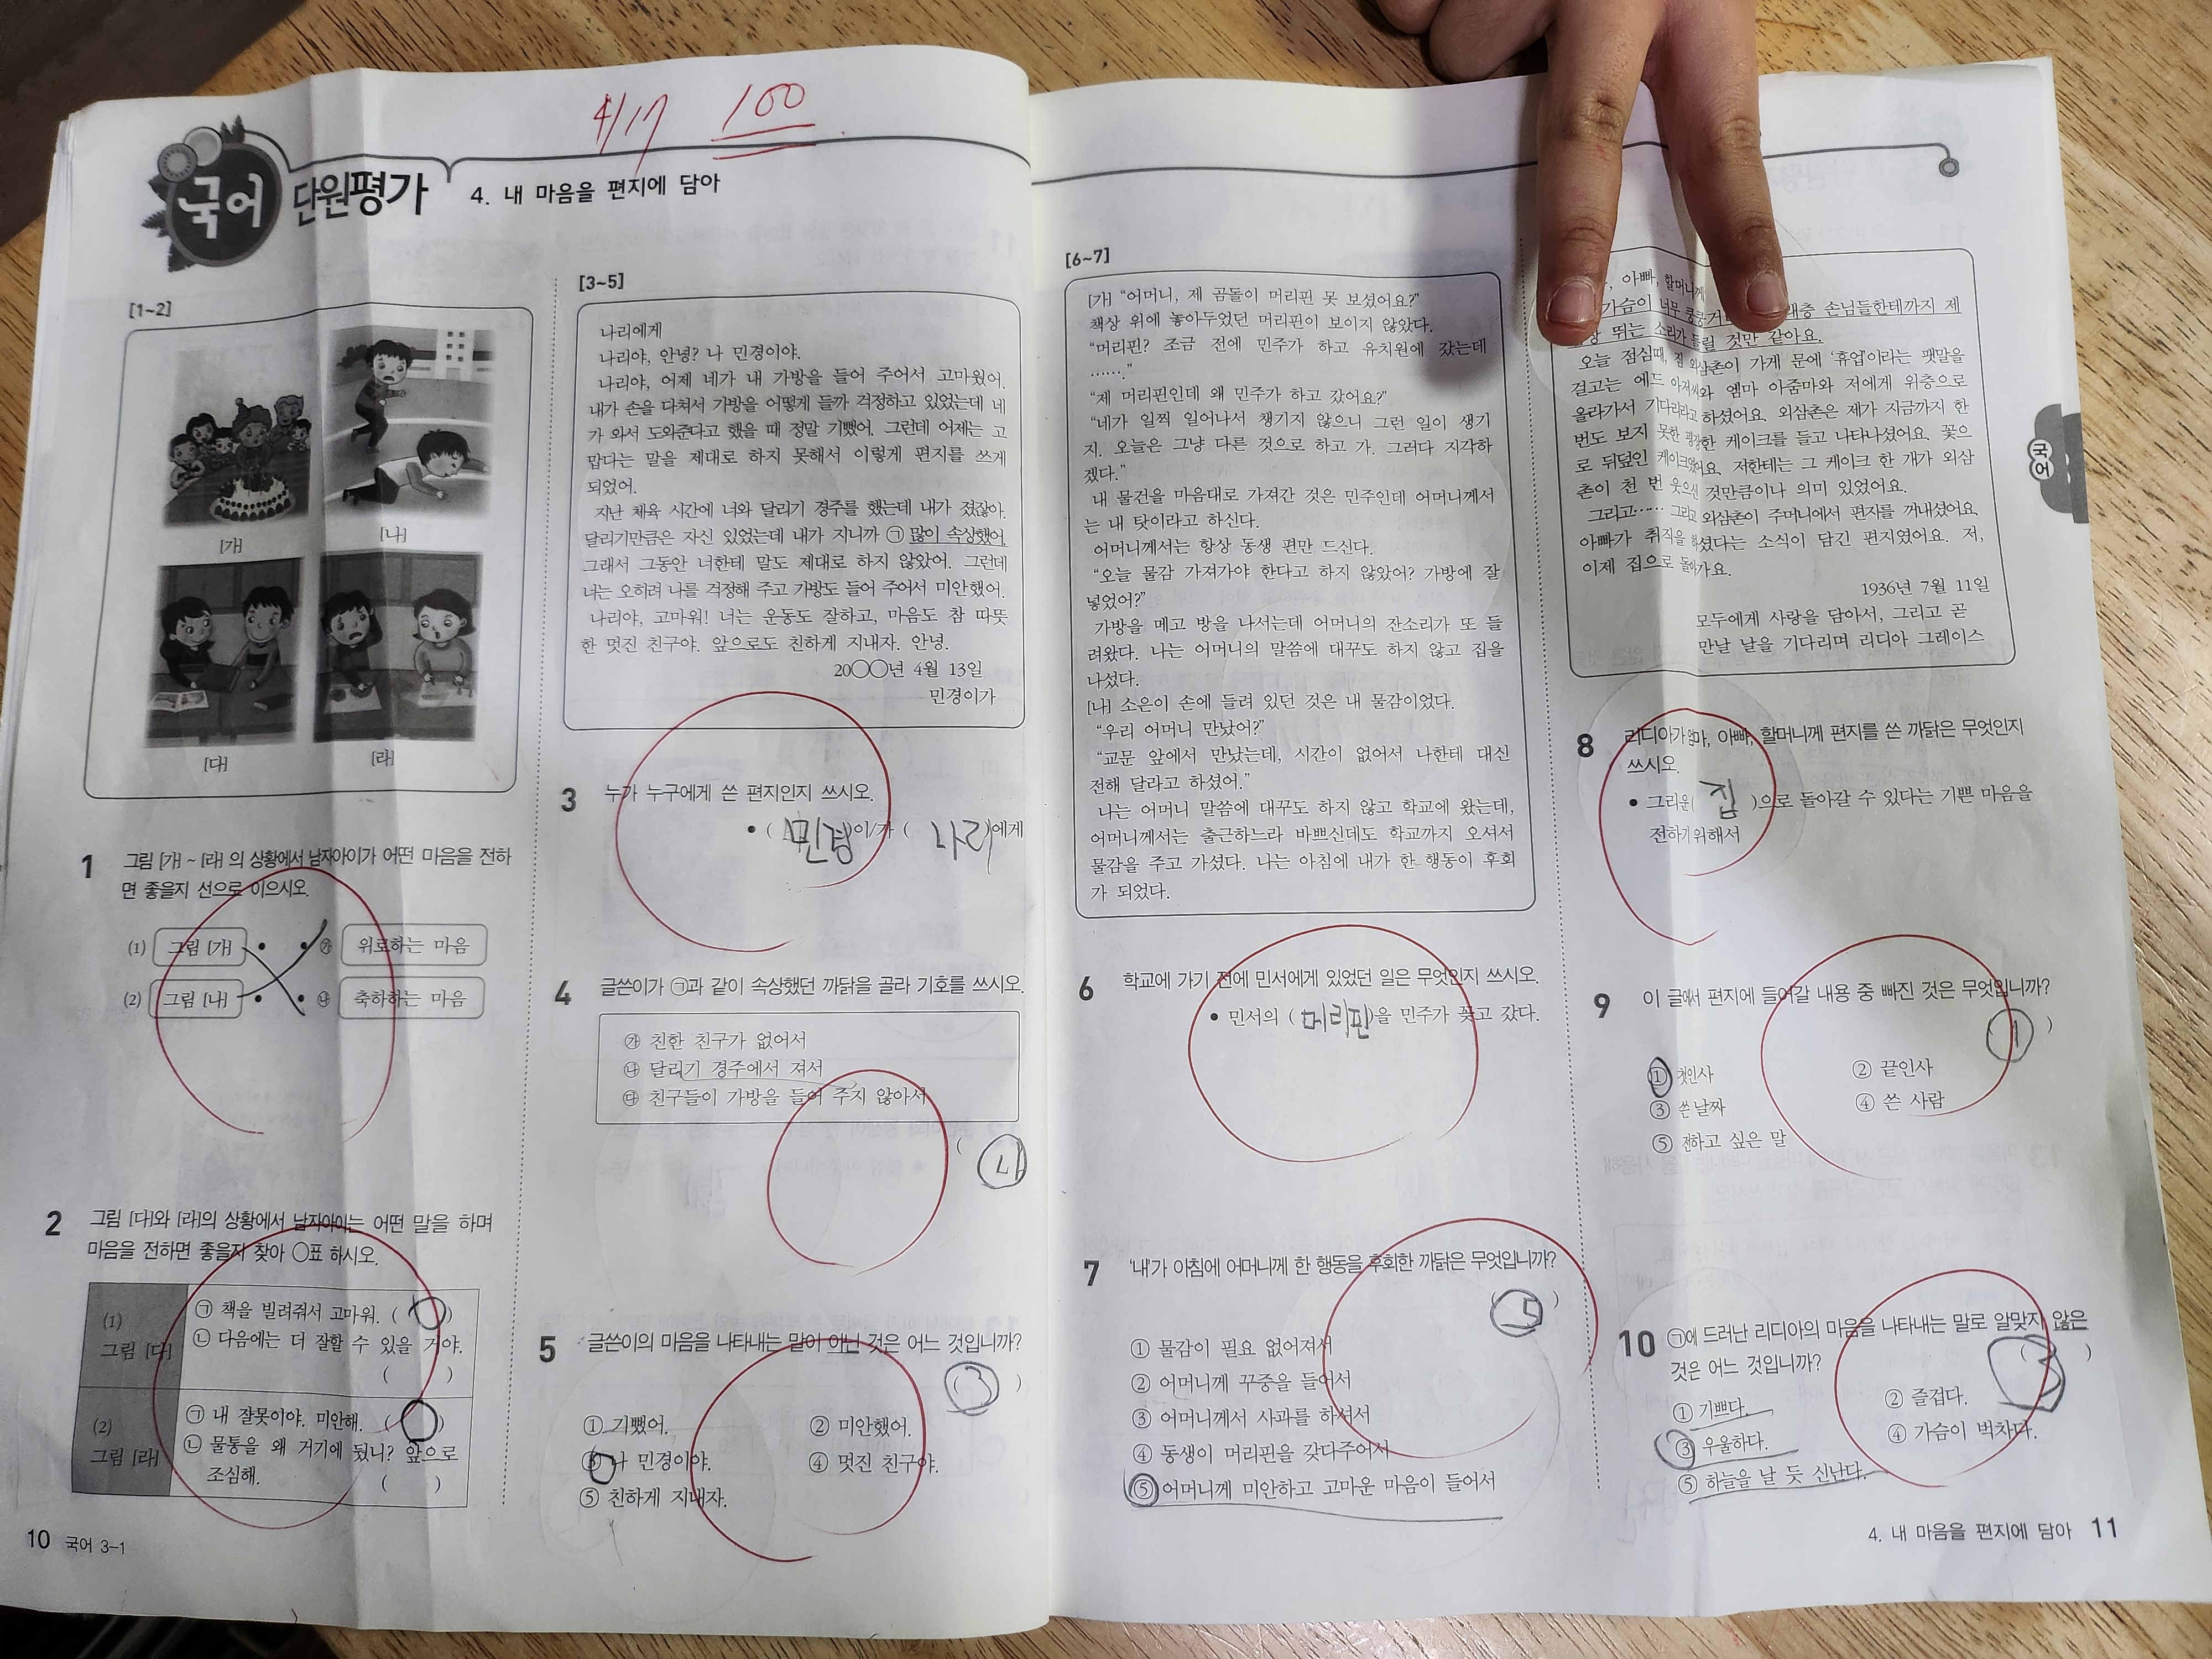 4/17 100
국어 단원평가 4. 내 마음을 편지에 담아
[1~2]
[가]
[나]
[다]
[라]
1 그림 [가] ~ [라] 의 상황에서 남자아이가 어떤 마음을 전하
면 좋을지 선으로 이으시오.
(1) 그림 [가] • • ㉮ 위로하는 마음
(2) 그림 [나] • • ㉯ 축하하는 마음
2 그림 [다]와 [라]의 상황에서 남자아이는 어떤 말을 하며
마음을 전하면 좋을지 찾아 ○표 하시오.
(1)
그림 [다]
㉠ 책을 빌려줘서 고마워. ( ○ )
㉡ 다음에는 더 잘할 수 있을 거야.
( )
(2)
그림 [라]
㉠ 내 잘못이야. 미안해. ( ○ )
㉡ 물통을 왜 거기에 뒀니? 앞으로
조심해. ( )
10 국어 3-1
[3~5]
나리에게
나리야, 안녕? 나 민경이야.
나리야, 어제 네가 내 가방을 들어 주어서 고마웠어.
내가 손을 다쳐서 가방을 어떻게 들까 걱정하고 있었는데 네
가 와서 도와준다고 했을 때 정말 기뻤어. 그런데 어제는 고
맙다는 말을 제대로 하지 못해서 이렇게 편지를 쓰게
되었어.
지난 체육 시간에 너와 달리기 경주를 했는데 내가 졌잖아.
달리기만큼은 자신 있었는데 내가 지니까 ㉠ 많이 속상했어.
그래서 그동안 너한테 말도 제대로 하지 않았어. 그런데
너는 오히려 나를 걱정해 주고 가방도 들어 주어서 미안했어.
나리야, 고마워! 너는 운동도 잘하고, 마음도 참 따뜻
한 멋진 친구야. 앞으로도 친하게 지내자. 안녕.
20○○년 4월 13일
민경이가
3 누가 누구에게 쓴 편지인지 쓰시오.
• ( 민경 )이/가 ( 나리 )에게
4 글쓴이가 ㉠과 같이 속상했던 까닭을 골라 기호를 쓰시오.
㉮ 친한 친구가 없어서
㉯ 달리기 경주에서 져서
㉰ 친구들이 가방을 들어 주지 않아서
( ㉯
5 글쓴이의 마음을 나타내는 말이 아닌 것은 어느 것입니까?
( ③ )
① 기뻤어. ② 미안했어.
③ 나 민경이야. ④ 멋진 친구야.
⑤ 친하게 지내자.
[6~7]
[가] “어머니, 제 곰돌이 머리핀 못 보셨어요?”
책상 위에 놓아두었던 머리핀이 보이지 않았다.
“머리핀? 조금 전에 민주가 하고 유치원에 갔는데
…….”
“제 머리핀인데 왜 민주가 하고 갔어요?”
“네가 일찍 일어나서 챙기지 않으니 그런 일이 생기
지. 오늘은 그냥 다른 것으로 하고 가. 그러다 지각하
겠다.”
내 물건을 마음대로 가져간 것은 민주인데 어머니께서
는 내 탓이라고 하신다.
어머니께서는 항상 동생 편만 드신다.
“오늘 물감 가져가야 한다고 하지 않았어? 가방에 잘
넣었어?”
가방을 메고 방을 나서는데 어머니의 잔소리가 또 들
려왔다. 나는 어머니의 말씀에 대꾸도 하지 않고 집을
나섰다.
[나] 소은이 손에 들려 있던 것은 내 물감이었다.
“우리 어머니 만났어?”
“교문 앞에서 만났는데, 시간이 없어서 나한테 대신
전해 달라고 하셨어.”
나는 어머니 말씀에 대꾸도 하지 않고 학교에 왔는데,
어머니께서는 출근하느라 바쁘신데도 학교까지 오셔서
물감을 주고 가셨다. 나는 아침에 내가 한 행동이 후회
가 되었다.
6 학교에 가기 전에 민서에게 있었던 일은 무엇인지 쓰시오.
• 민서의 ( 머리핀 )을 민주가 꽂고 갔다.
7 ‘내’가 아침에 어머니께 한 행동을 후회한 까닭은 무엇입니까?
( ⑤ )
① 물감이 필요 없어져서
② 어머니께 꾸중을 들어서
③ 어머니께서 사과를 하셔서
④ 동생이 머리핀을 갖다주어서
⑤ 어머니께 미안하고 고마운 마음이 들어서
, 아빠, 할머니께
가슴이 너무 쿵쿵거 래층 손님들한테까지 제
뛰는 소리가 들릴 것만 같아요.
오늘 점심때, 짐 외삼촌이 가게 문에 ‘휴업’이라는 팻말을
걸고는 에드 아저씨와 엠마 아줌마와 저에게 위층으로
올라가서 기다리라고 하셨어요. 외삼촌은 제가 지금까지 한
번도 보지 못한 굉장한 케이크를 들고 나타나셨어요. 꽃으
로 뒤덮인 케이크였어요. 저한테는 그 케이크 한 개가 외삼
촌이 천 번 웃으신 것만큼이나 의미 있었어요.
그리고…… 그리고 외삼촌이 주머니에서 편지를 꺼내셨어요.
아빠가 취직을 하셨다는 소식이 담긴 편지였어요. 저,
이제 집으로 돌아가요.
1936년 7월 11일
모두에게 사랑을 담아서, 그리고 곧
만날 날을 기다리며 리디아 그레이스
국어
8 리디아가 엄마, 아빠, 할머니께 편지를 쓴 까닭은 무엇인지
쓰시오.
• 그리운( 집 )으로 돌아갈 수 있다는 기쁜 마음을
전하기 위해서
9 이 글에서 편지에 들어갈 내용 중 빠진 것은 무엇입니까?
① )
① 첫인사 ② 끝인사
③ 쓴 날짜 ④ 쓴 사람
⑤ 전하고 싶은 말
10 ㉠에 드러난 리디아의 마음을 나타내는 말로 알맞지 않은
것은 어느 것입니까? ( ③ )
① 기쁘다. ② 즐겁다.
③ 우울하다. ④ 가슴이 벅차다.
⑤ 하늘을 날 듯 신난다.
4. 내 마음을 편지에 담아 11